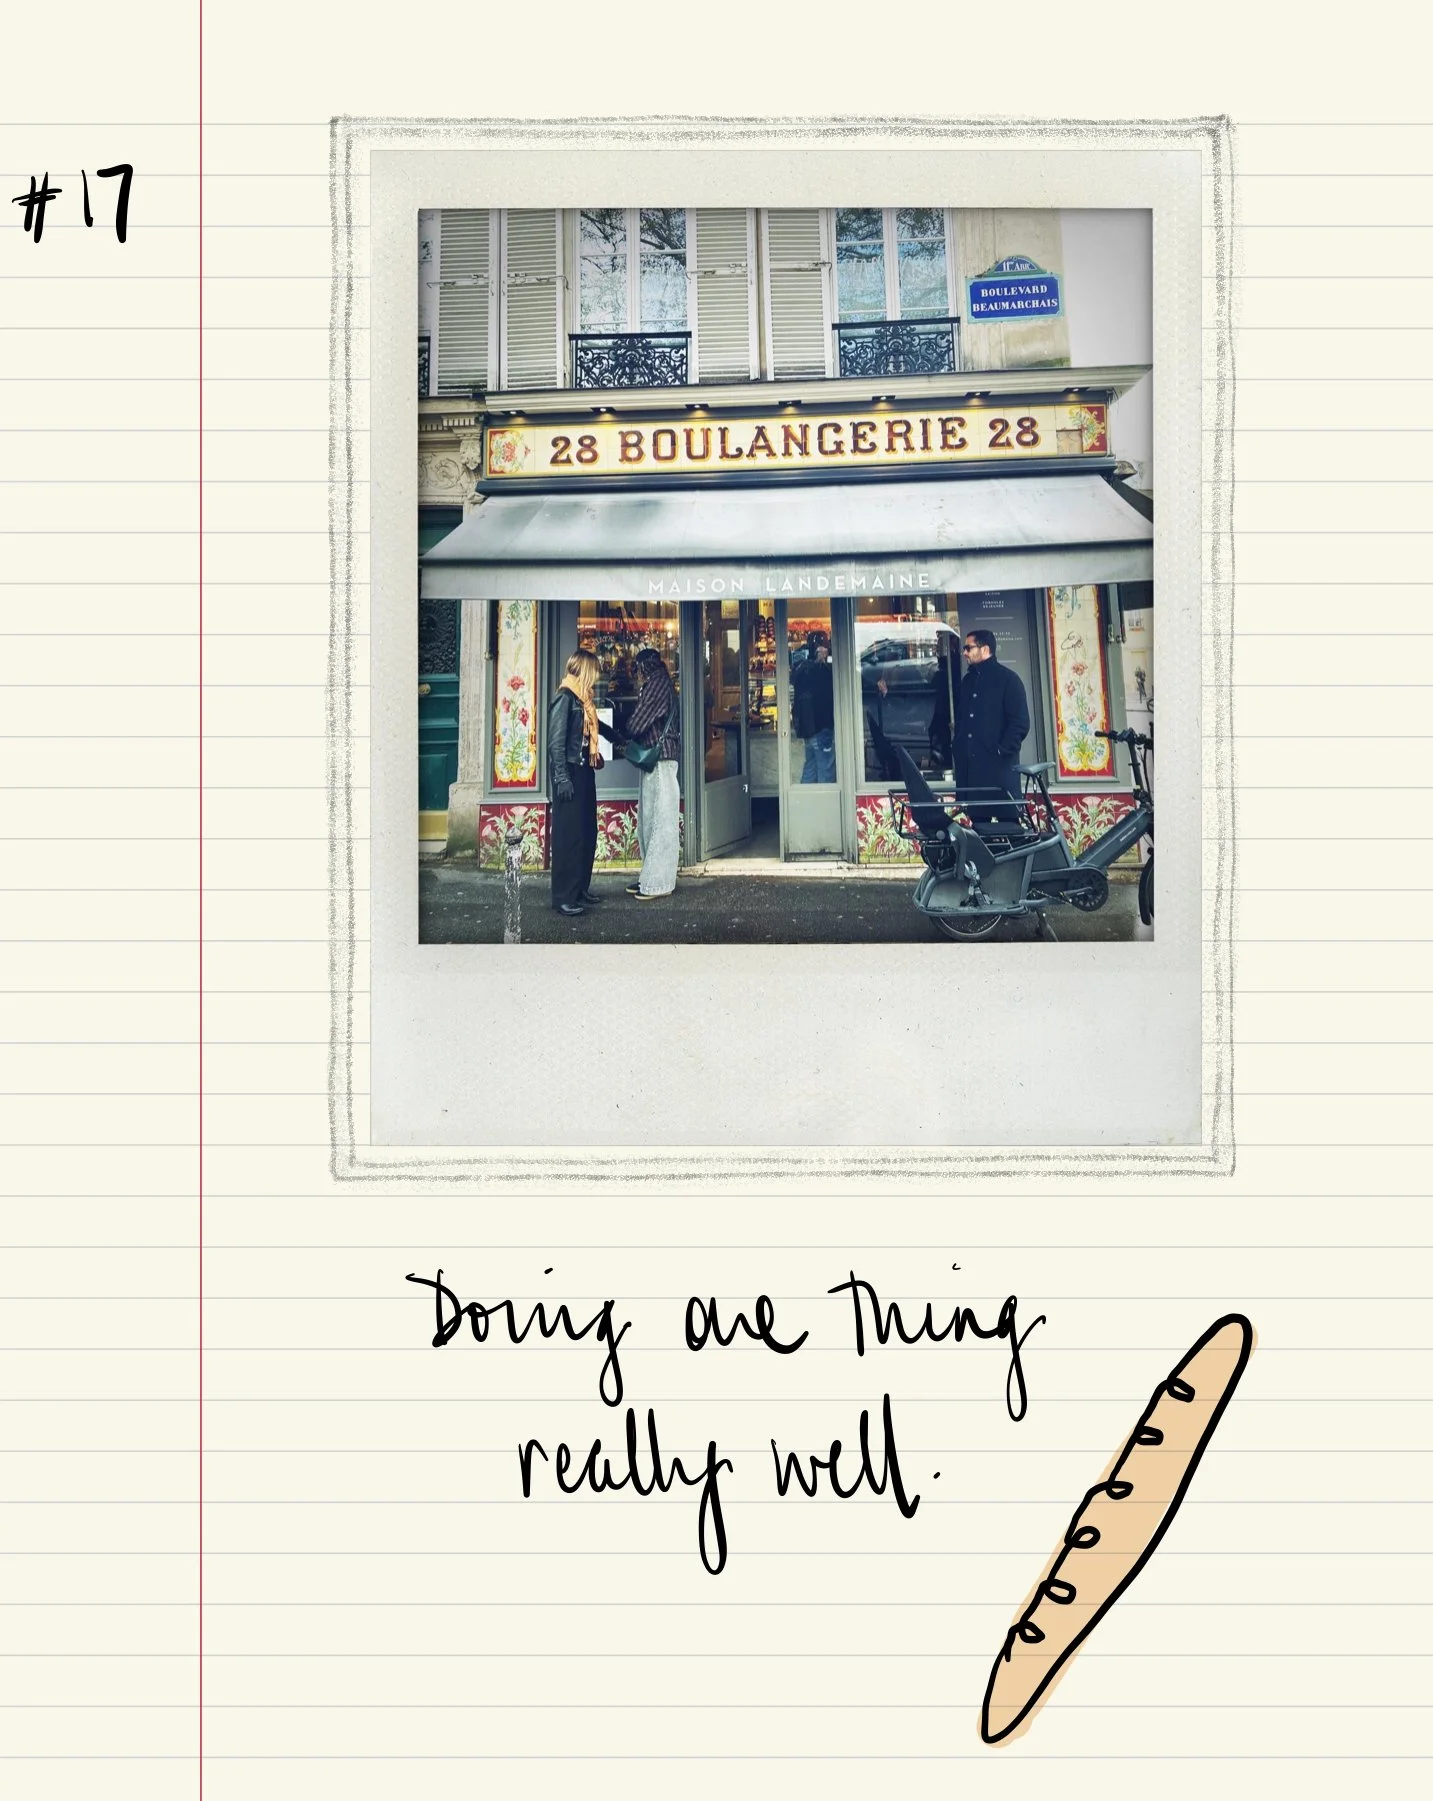 #17
11e Arrt
BOULEVARD
BEAUMARCHAIS
28 BOULANGERIE 28
MAISON LANDEMAINE
Doing one thing
really well.